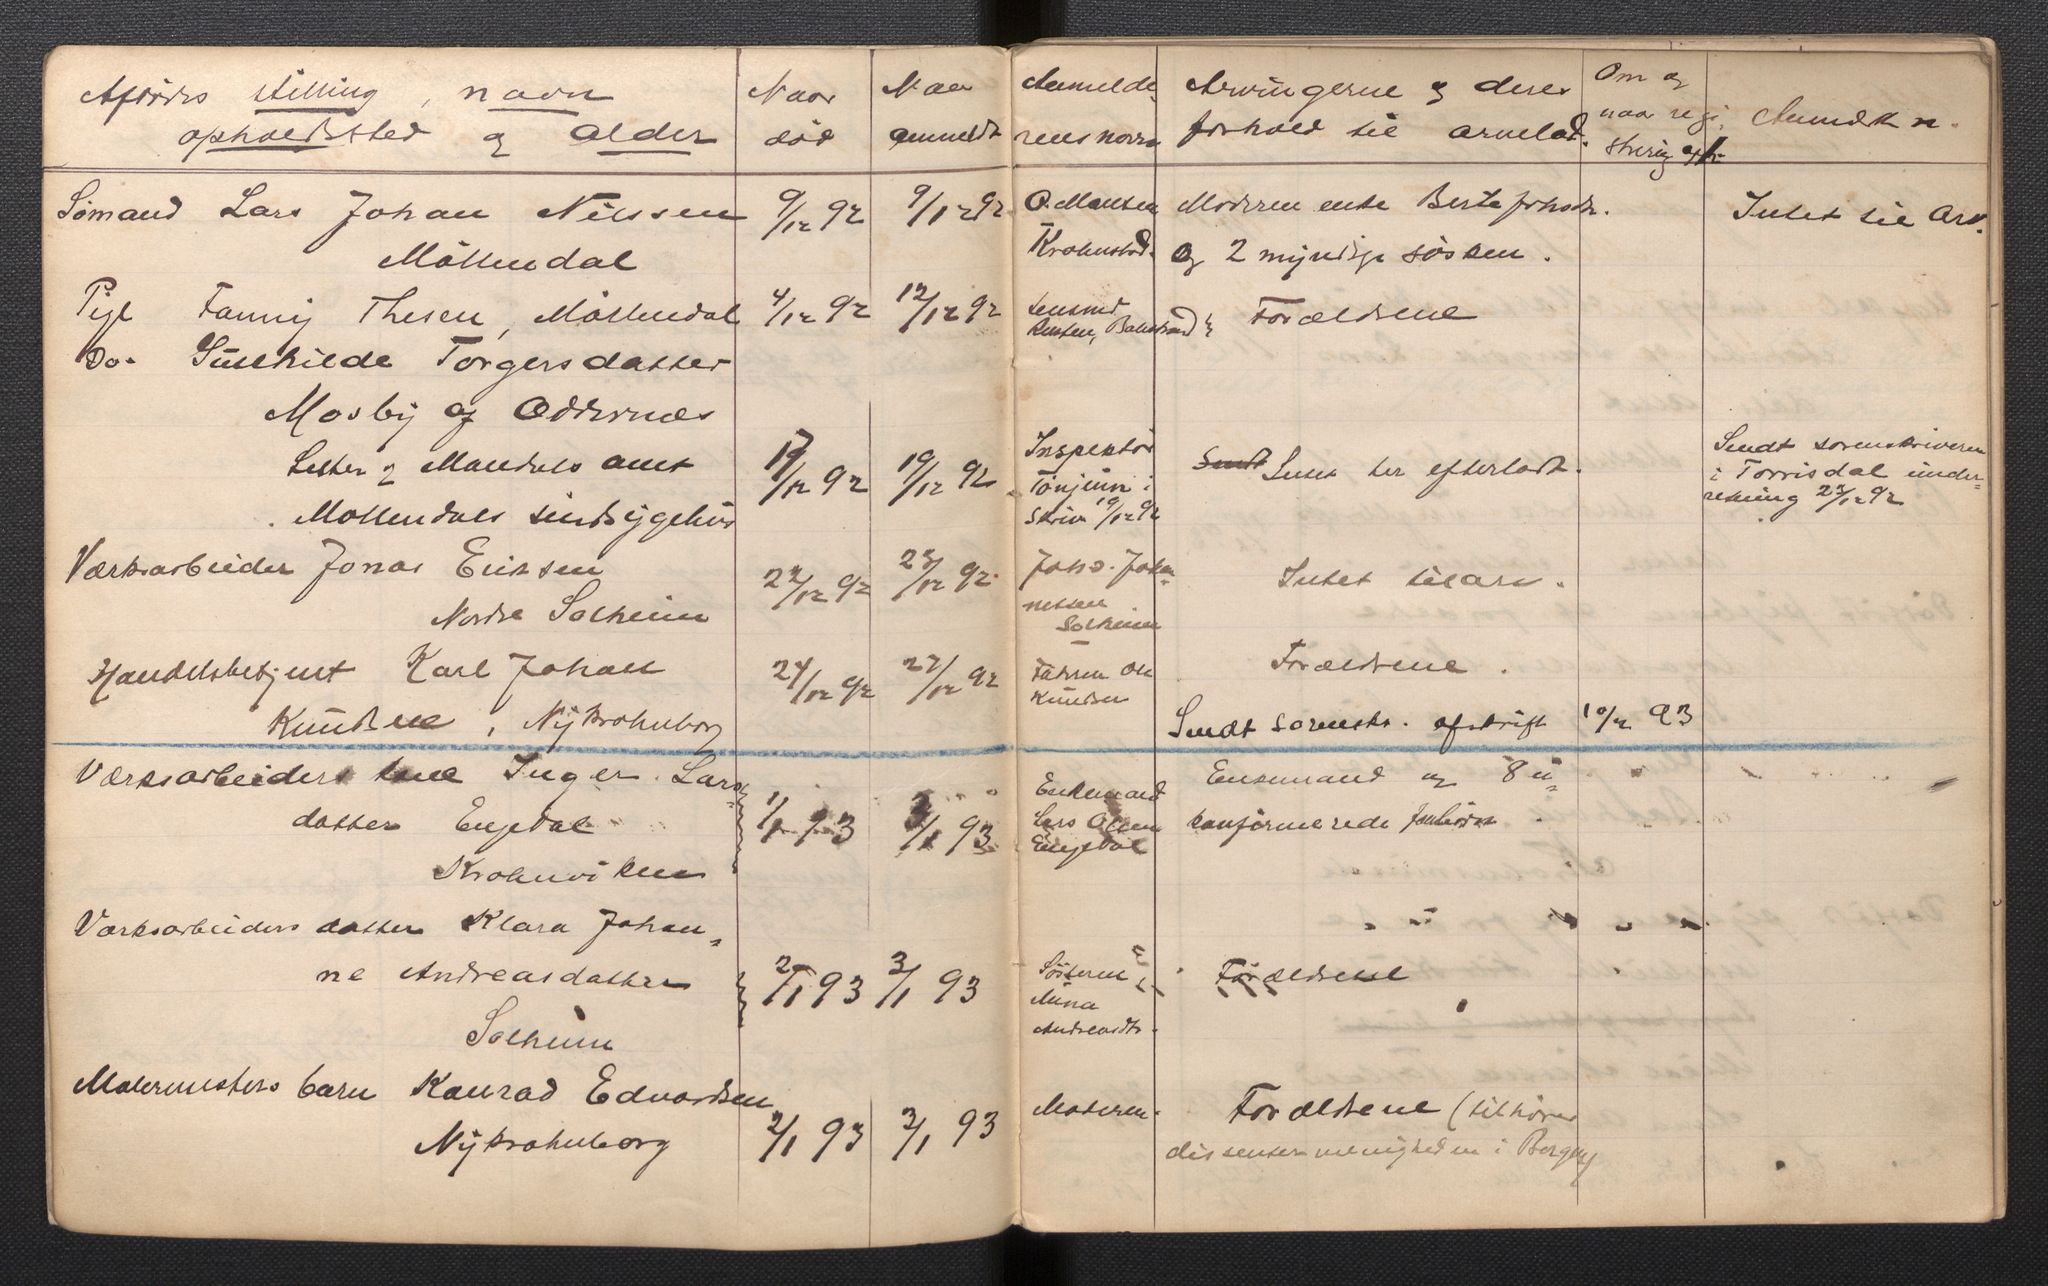 Afdødes stilling, navn
opholdssted og alder
Naar
død
Naar
anmeldt
Anmelde-
rens navn
Arvingerne og deres
forhold til arvelad.
Om og
naar regi-
strering afh.
Anmærkn.
Sømand Lars Johan Nilssen
Møllendal
9/12 92
9/12 92
O. Monsen
Kronstad.
Moderen enke Berte Johsdr.
og 2 myndige søsken.
Intet til Arv.
Pige Fanny Thesen, Møllendal
4/12 92
12/12 92
Lensmd
Balestrand
Forældrene
Do. Gunhilde Torgersdatter
Mosby af Oddernæs
Lister og Mandals amt
Møllendals sindsygehus
17/12 92
19/12 92
Inspektør
Tønjum i
skriv 19/12 92
Sendt Intet her efterladt.
Sendt sorenskriveren
i Torrisdal under-
retning 22/12 92
Værksarbeider Jonas Eriksen
Nordre Solheim
22/12 92
23/12 92
Johs. Johan-
nessen
Solheim
Intet til arv.
Handelsbetjent Karl Johan
Knudsen, Nykrohnborg
24/12 92
27/12 92
Faderen Ole
Knudsen
Forældrene.
Sendt sorenskr. afskrift 10/1 93
Værksarbeiders kone Inger Lars-
datter Engedal
Krohnviken
1/1 93
3/1 93
Enkemand
Lars Olsen
Engedal
Enkemand og 8 u-
konfirmerede
Værksarbeiders datter Klara Johan-
ne Andreasdatter
Solheim
2/1 93
3/1 93
Søsteren
Mina
Andreasdtr.
Forældrene
Malermesters barn Konrad Edvardsen
Nykrohnborg
2/1 93
3/1 93
Moderen.
Forældrene (tilhører
dissentermenigheden i Bergen)